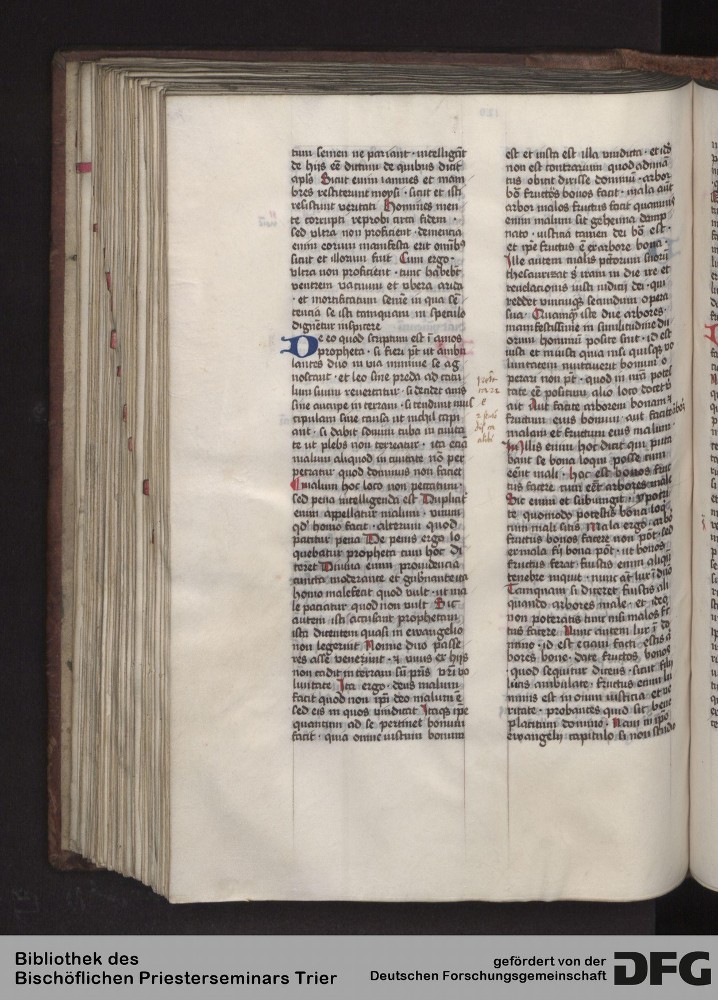 tum semen ne pariant · intelligat̄
de hijs eē dictum de quibus dicit
apl̄s Sicut enim iannes et mam
bres restiterunt moysi · sicut et isti
resistunt veritati Homines men
te corrupti reprobi circa fidem ·
sed vltra non proficient · dementia
enim eorum manifesta erit omībꝫ
sicut et illorum fuit Cum ergo ·
vltra non proficient · tunc habebūt
ventrem vacuum et vbera arida
· et mortificatum semen in qua sē
tencia se isti tamquam in speculo
dignētur inspicere
De eo quod scriptum est ī amos
propheta · si fieri pōt ut ambu
lantes duo in via omnine se ag
noscant · et leo sine preda ad catu
lum suum reuertatur · si decidet auis
sine aucupe in terram · si tendunt mus
cipulam sine causa ut nichil capi
ant · si dabit sonum tuba in ciuita
te ut plebs non terreatur · ita etiā
malum aliquod in ciuitate nō per
petratur quod dominus non faciet
Malum hoc loco non peccatum ·
sed pena intelligenda est Duplicit̄
enim appellatur malum · vnum
qd̄ homo facit · alterum quod
patitur pena De penis ergo lo
quebatur propheta cum hoc di
ceret Diuina enim prouidencia
cuncta moderante et gubernante ita
homo malefecit quod vult · ut ma
le paciatur quod non vult Sic
autem isti accusant prophetam
isti dicentem quasi in ewangelio
non legerint Nonne duo passe
res asse veneunt · ⁊ vnus ex hijs
non cadit in terram sn̄ pr̄is vr̄i vo
luntate Ita ergo · deus malum
facit quod non ip̄i deo malum ē
sed eis in quos vindicat Itaqꝫ ip̄e
quantum ad se pertinet bonum
facit · quia omne iustum bonum
est et iusta est illa vindicta · et iō
non est contrarium quod adiman
tus obicit dixisse dominum · arbor
bō fructus bonos facit · mala aut̄
arbor malos fructus facit quamuis
enim malum sit gehenna damp
nato · iusticia tamen dei bō est ·
et ip̄e fructus ē ex arbore bona ·
Ille autem malis pctōrum suorū
thesaurizat s̄ iram in die ire et
reuelacionis iusti iudicij dei · qui
reddet vnicuiqꝫ secundum opera
sua · Quamqꝫ iste due arbores ·
manifestissime in similitudine du
orum hominum posite sint · id est
iusti et iniusti quia nisi quisqꝫ vo
luntatem mutauerit bonum o
perari non pōt · quod in nr̄a potes
tate eē positum alio loco docet vt
ait Aut facite arborem bonam ⁊
fructum eius bonum · aut facite
malam et fructum eius malum
Illis enim hoc dicit qui puta
bant se bona loqui posse cum
eēnt mali · hoc est bonos fruc
tus facere cum eēt arbores male
Sic enim et subiungit · ypocri
te quomodo potestis bona loqͥ
cum mali sitis Mala ergo · arbo
fructus bonos facere non pōt · sed
ex mala fij bona pōt · ut bonos
fructus ferat fuistis enim aliqͥ
tenebre inquit · nunc aūt lux ī dn̄o
Tamquam si diceret fuistis ali
quando arbores male · et ideo
non poteratis tunc nisi malos fc̄
tus facere Nunc autem lux ī do
mino · id est etiam facti estis a
bores bone · date fructus bonos
· quod sequitur dicens · sicut filij
lucis ambulate · fructus enim lu
minis est in omni iusticia et ve
ritate · probantes quid sit bene
placitum domino · Nam in ip̄o
ewangelij capitulo si non studio
Bibliothek des
Bischöflichen Priesterseminars Trier
gefördert von der
Deutschen Forschungsgemeinschaft
DFG